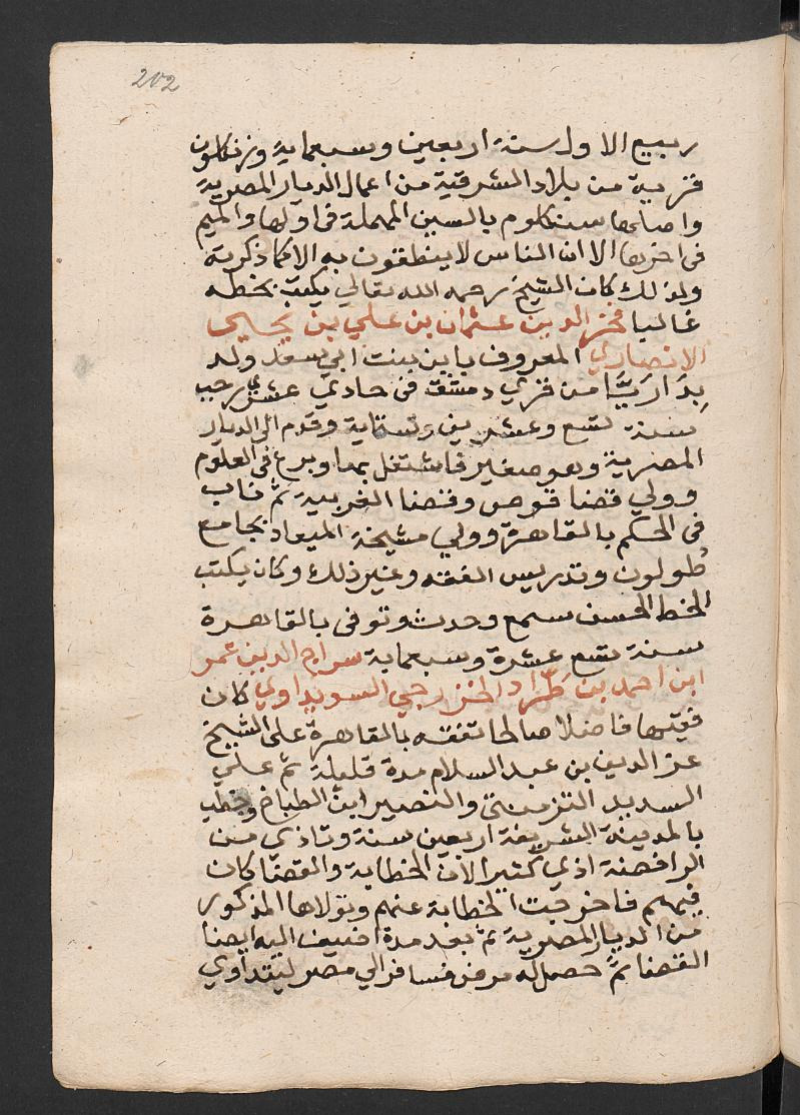 202
ربيع الاول سنة اربعين وسبعماية وزنكلون
قرية من بلاد الشرقية من اعمال الديار المصرية
واصلها سنكلوم بالسين المهملة في اولها والميم
في اخرها الا ان الناس لا ينطقون به الا كما ذكرته
ولذلك كان الشيخ رحمه الله تعالي يكتب بخطه
غالبا فخر الدين عثمان بن علي بن يحيى
الانصاري المعروف بابن بنت ابي سعد ولد
بداريا من قري دمشق في حادي عشري رجب
سنة تسع وعشرين وستماية وقدم الي الديار
المصرية وهو صغير فاشتغل بها وبرع في العلوم
وولي قضا قوص وقضا الغربية ثم ناب
في الحكم بالقاهرة وولي مشيخة الميعاد بجامع
طولون وتدريس الفقه وغير ذلك وكان يكتب
الخط الحسن سمع وحدث وتوفي بالقاهرة
سنة تسع عشرة وسبعماية سراج الدين عمر
ابن احمد بن طراد الخزرجي السويداوي كان
فقيها فاضلا صالحا تفقه بالقاهرة على الشيخ
عز الدين بن عبد السلام مدة قليلة ثم علي
السديد التزمنتي والنصير ابن الطباخ وخطب
بالمدينة الشريفة اربعين سنة وتاذي من
الرافضة اذي كثيرا لان الخطابة والقضا كان
فيهم فاخرجت الخطابة عنهم وتولاها المذكور
من الديار المصرية ثم بعد مدة اضيف اليه ايضا
القضا ثم حصل له مرض فسافر الي مصر ليتداوي